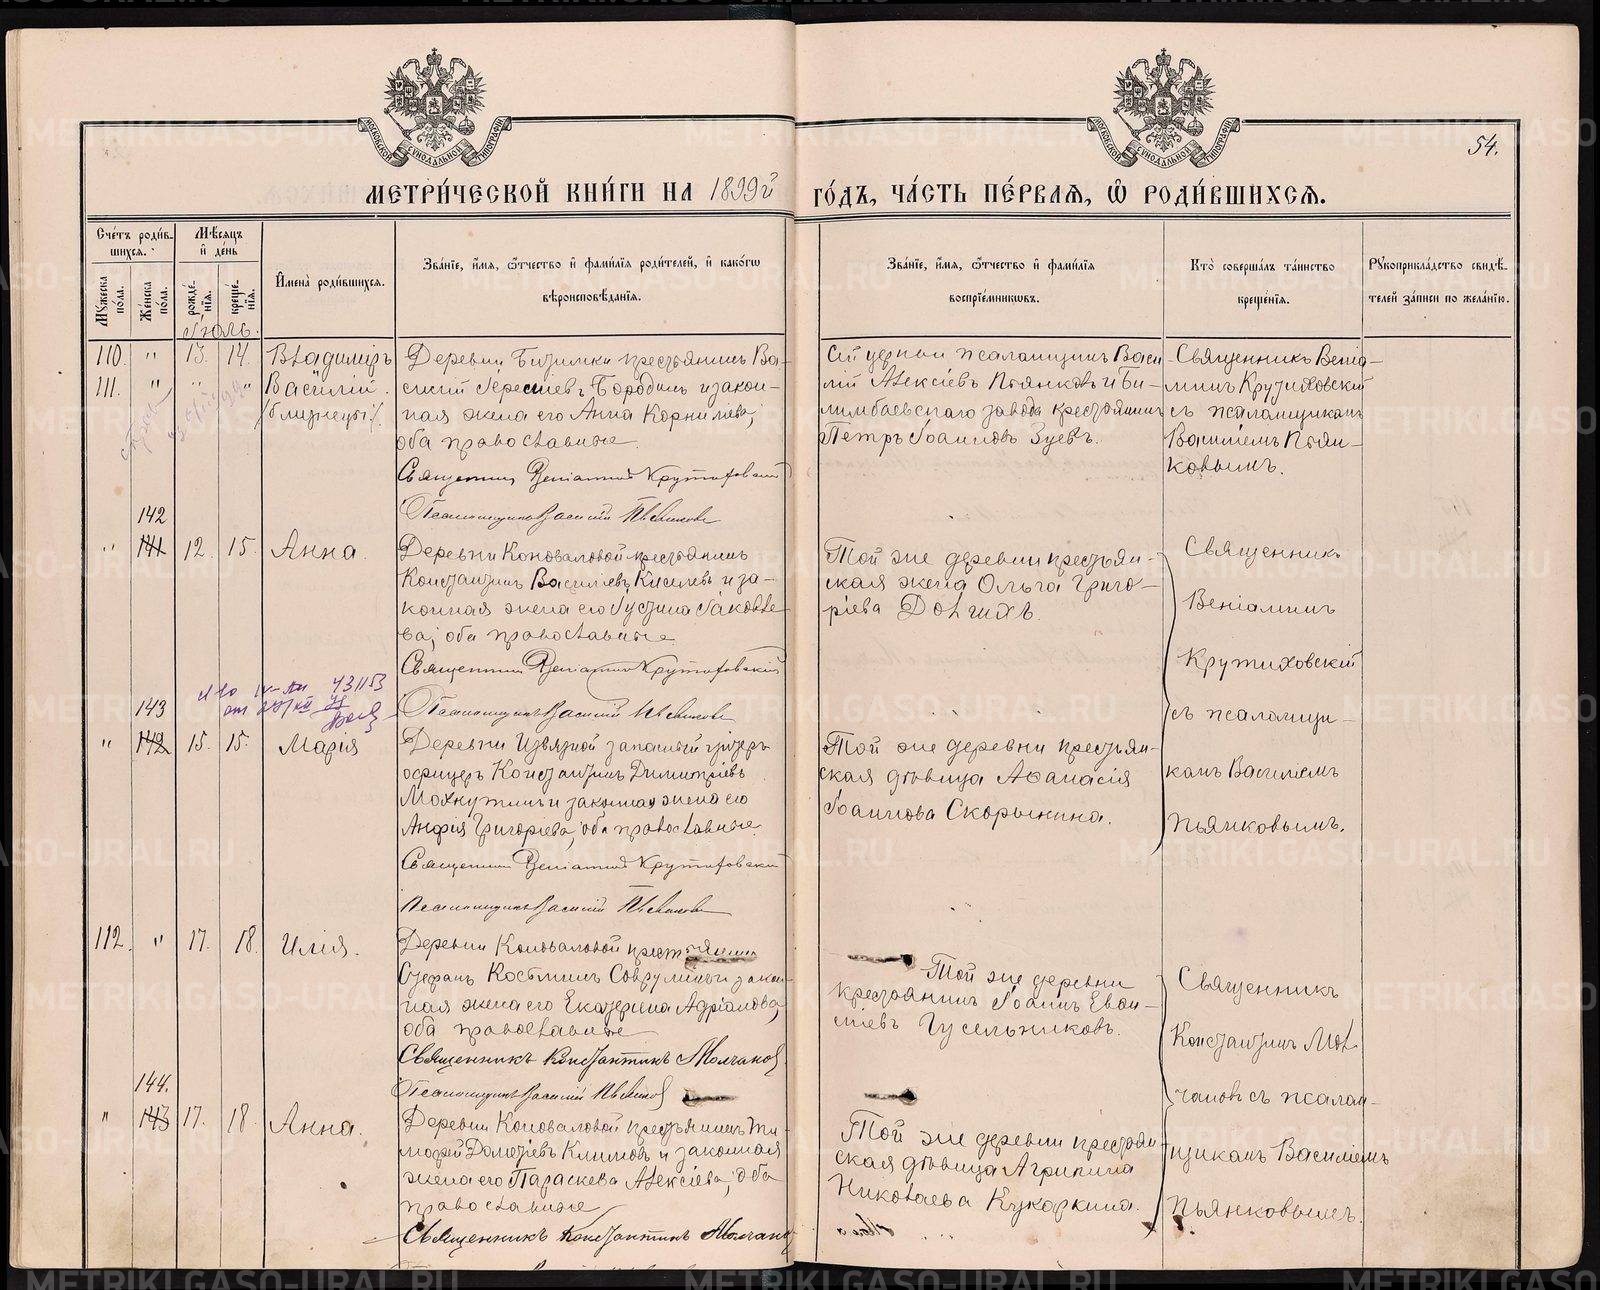 54.
МЕТРИ́ЧЕСКОЙ КНИ́ГИ НА 1899й ГО́ДЪ, ЧА́СТЬ ПЕ́РВАѦ, Ѽ РОДИ́ВШИХСѦ.
Сче́тъ роди́вшихсѧ.
Мѣ́сѧцъ и де́нь
Мꙋ́жеска по́ла.
Же́нска по́ла.
рожде́нїѧ.
креще́нїѧ.
И҆мена̀ роди́вшихсѧ.
Зва́нїе, и҆́мѧ, ѻ҆́тчество и҆ фами́лїѧ роди́телей, и҆ како́гѡ
вѣроисповѣ́данїѧ.
Зва́нїе, и҆́мѧ, ѻ҆́тчество и҆ фами́лїѧ
воспрїе́мникѡвъ.
Кто̀ соверша́лъ та́инство
креще́нїѧ.
Рꙋкоприкла́дство свидѣ́телей за́писи по жела́нїю.
Іюль.
110. " 13. 14. Владимиръ
111. " " " Василій.
/близнецы/.
Деревни Битимки крестьянинъ Ва-
силій Бородинъ и закон-
ная жена его Анна Корниліева;
оба православные.
Священникъ Веніаминъ Крутиховскій
Псаломщикъ Василій Пьянковъ
Сей церкви псаломщикъ Васи-
лій Алексіевъ Пьянковъ и Би-
лимбаевскаго завода крестьянинъ
Петръ Іоанновъ Зуевъ.
Священникъ Веніа-
минъ Крутиховскій
съ псаломщикомъ
Василіемъ Пьян-
ковымъ.
142
" 141 12. 15. Анна.
Деревни Коноваловой крестьянинъ
Константинъ Василіевъ Киселевъ и за-
конная жена его Іустина Іаковле-
ва; оба православные
Священникъ Веніаминъ Крутиховскій
Псаломщикъ Василій Пьянковъ
Той же деревни крестьян-
ская жена Ольга Григо-
ріева Долгихъ.
Священникъ
Веніаминъ
Крутиховскій
съ псаломщи-
комъ Василіемъ
Пьянковымъ.
143
" 142 15. 15. Марія
Деревни Извязной запасный унтеръ
офицеръ Константинъ Димитріевъ
Мохнуткинъ и законная жена его
Анфія Григоріева; оба православные.
Священникъ Веніаминъ Крутиховскій
Псаломщикъ Василій Пьянковъ
Той же деревни крестьян-
ская дѣвица Афанасія
Іоаннова Скорынина.
112. " 17. 18. Илія.
Деревни Коноваловой крестьянинъ
Стефанъ Косминъ и закон-
ная жена его Екатерина Адріанова;
оба православные
Священникъ Константинъ Молчановъ
Псаломщикъ Василій Пьянковъ
Той же деревни
крестьянинъ Іоаннъ
Гусельниковъ.
Священникъ
Константинъ Мол-
чановъ съ псалом-
щикомъ Василіемъ
Пьянковымъ.
144.
" 143 17. 18. Анна.
Деревни Коноваловой крестьянинъ Ти-
мофей Дометіевъ Климовъ и законная
жена его Параскева Алексіева; оба
православные
Священникъ Константинъ Молчановъ
Той же деревни крестьян-
ская дѣвица Агрипина
Николаева Кукаркина.